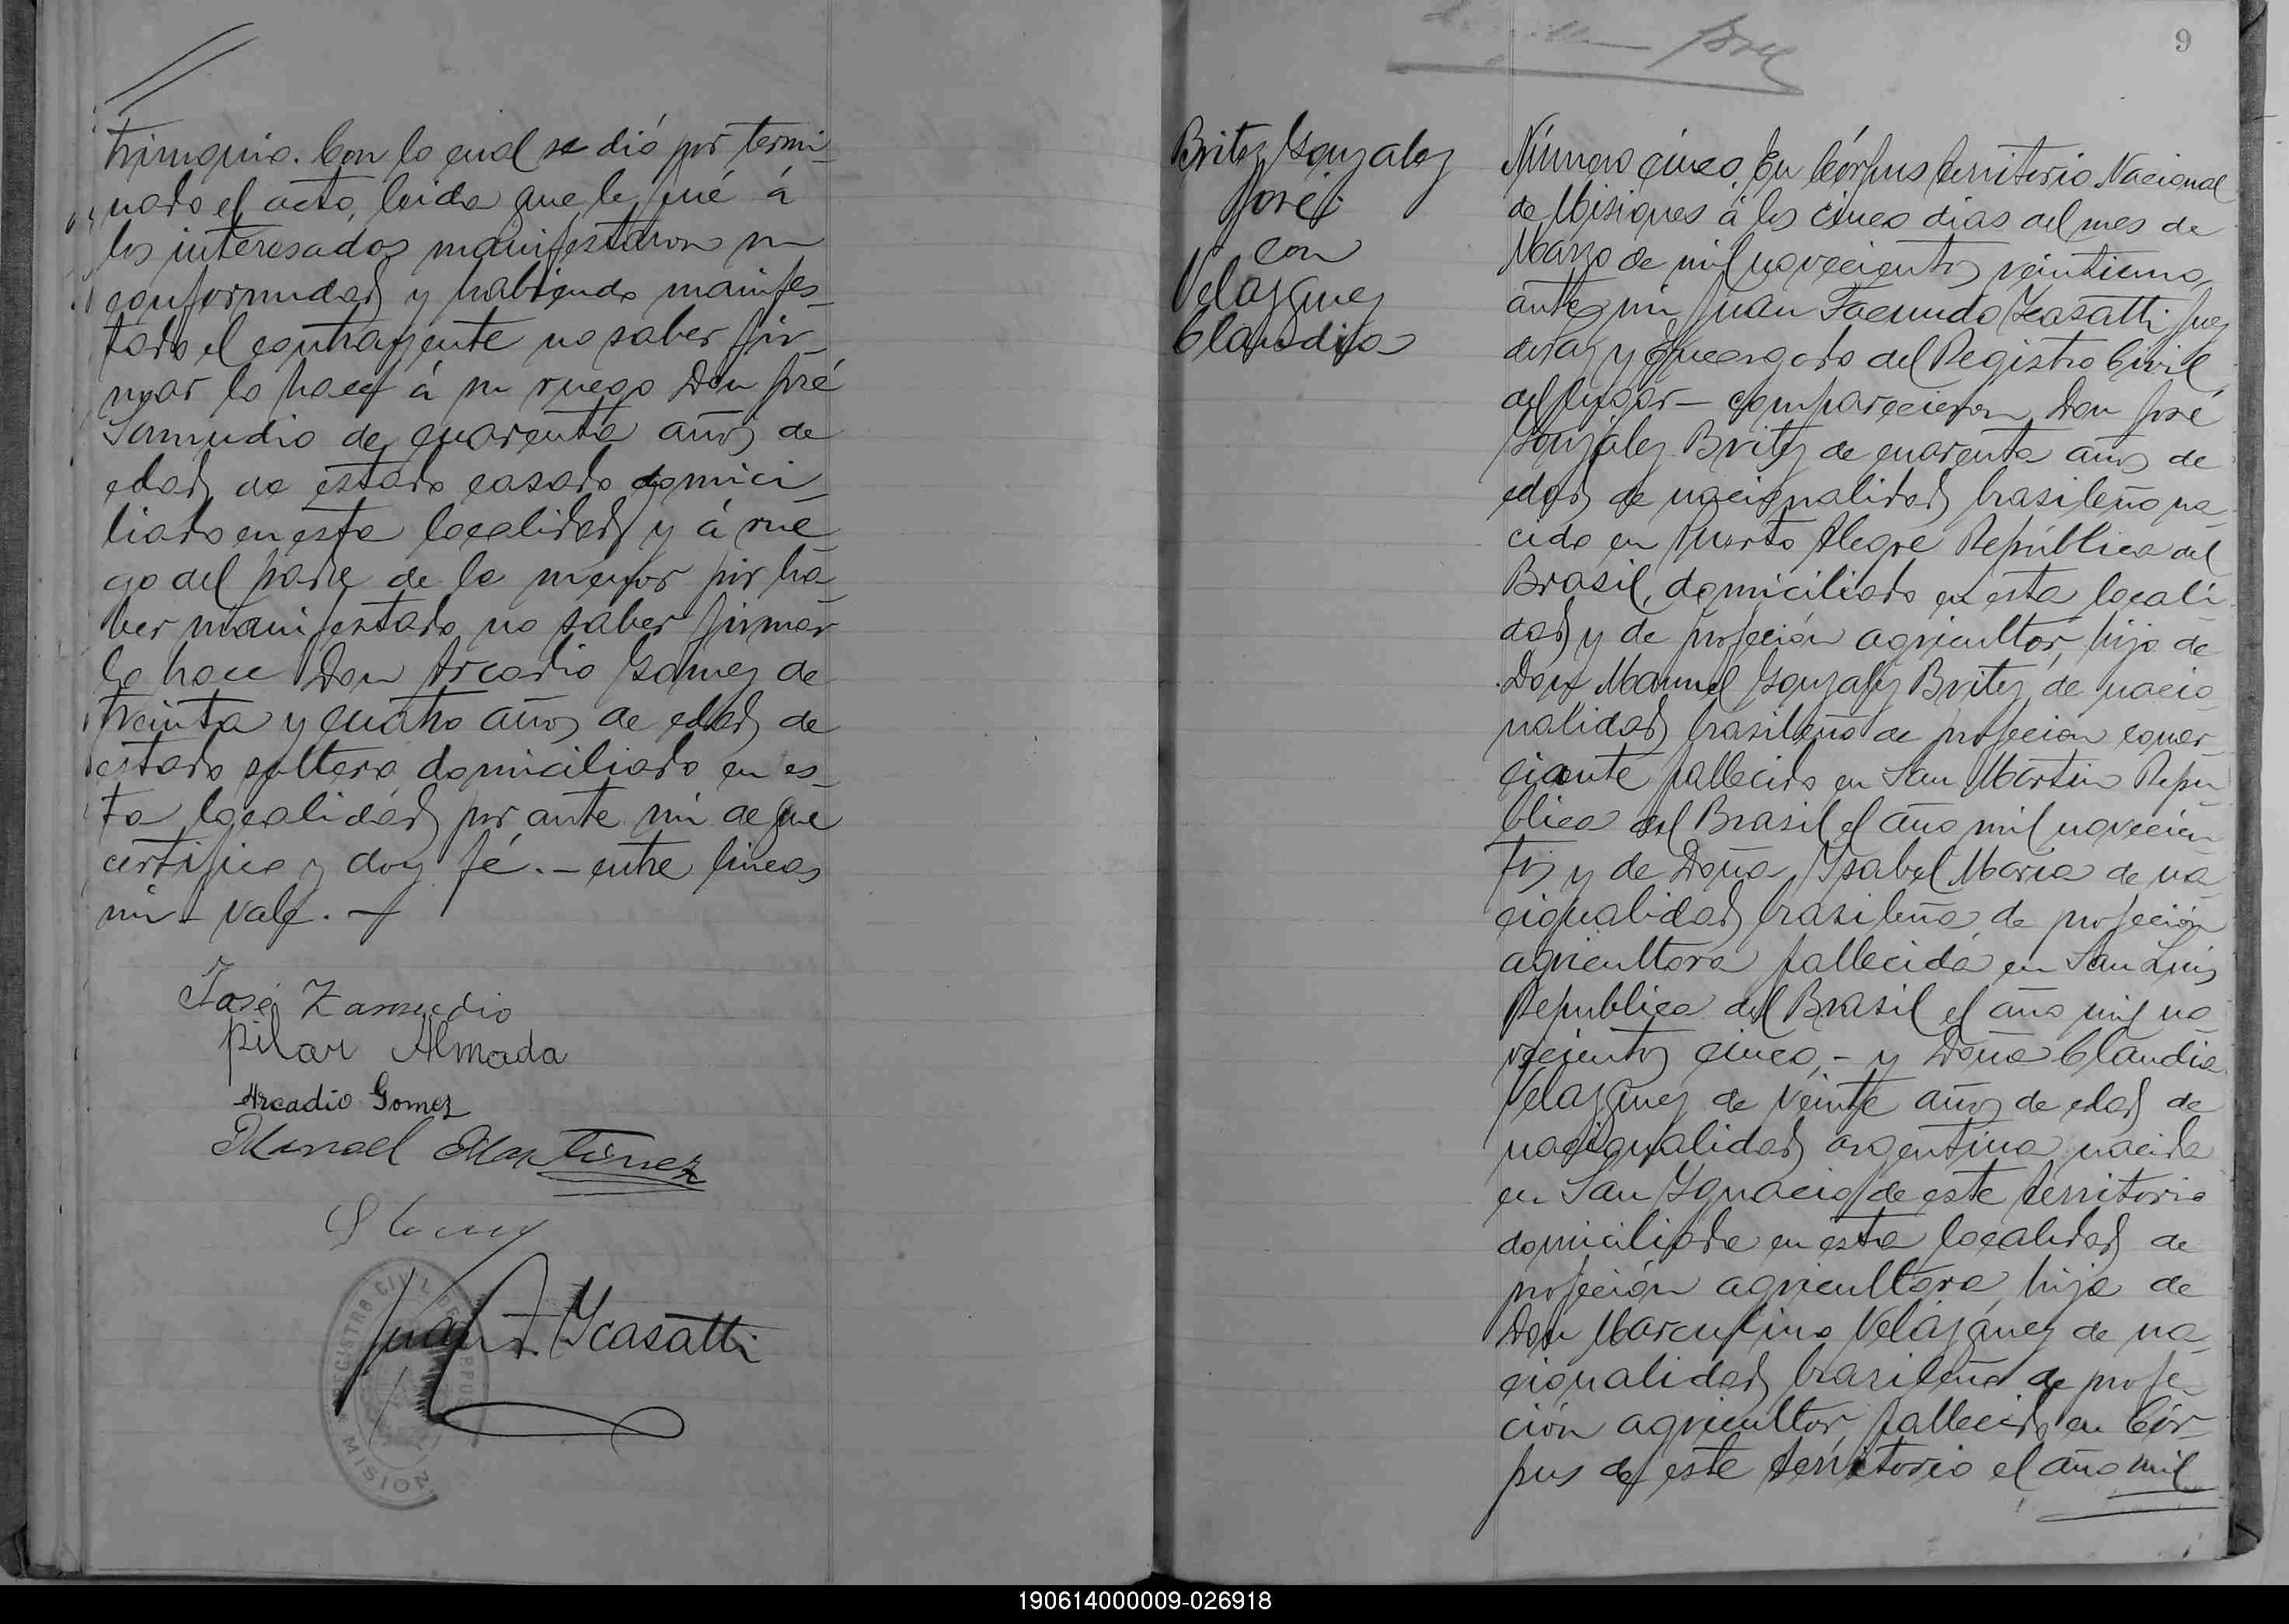 trimonio. Con lo cual se dió por termi-
nado el acto, leida que le fué á
los interesados manifestaron su
conformidad y habiendo manifes-
tado el contrayente no saber fir-
mar lo hace á su ruego Don José
Samudio de cuarenta años de
edad de estado casado domici-
liado en esta localidad y á rue
go del padre de la menor por ha-
ber manifestado no saber firmar
lo hace Don Arcadio Gomez de
treinta y cuatro años de edad de
estado soltero domiciliado en es-
ta localidad por ante mi de que
certifico y doy fé. - entre lineas
mi - vale. -
José Zamudio
Pilar Almada
Arcadio Gomez
Manoel Martinez
Juan F. Ycasatti
REGISTRO CIVIL DE CORPUS
MISION
9
Britez Gonzalez
José
con
Velazquez
Claudia
Número cinco, En Córpus territorio Nacional
de Misiones á los cinco dias del mes de
Marzo de mil novecientos veintiuno,
ante mi Juan Facundo Ycasatti Juez
de Paz y Encargado del Registro Civil
del lugar - comparecieron Don José
Gonzalez Britez de cuarenta años de
edad de nacionalidad brasileño na-
cido en Puerto Alegre República del
Brasil, domiciliado en esta locali-
dad y de profeción agricultor, hijo de
Don Manuel Gonzalez Britez de nacio-
nalidad brasileño de profecion comer-
ciante fallecido en San Martin Repu
blica del Brasil el año mil novecien
tos y de Doña Ysabel Maria de na-
cionalidad brasileña de profeción
agricultora fallecida en San Luis
Republica del Brasil el año mil no
vecientos cinco, - y Doña Claudia
Velazquez de veinte años de edad de
nacionalidad argentina nacida
en San Ygnacio de este territorio
domiciliada en esta localidad de
profeción agricultora, hija de
Don Marcelino Velázquez de na-
cionalidad brasileña de profe-
ción agricultor, fallecido en Cór-
pus de este territorio el año mil
190614000009-026918